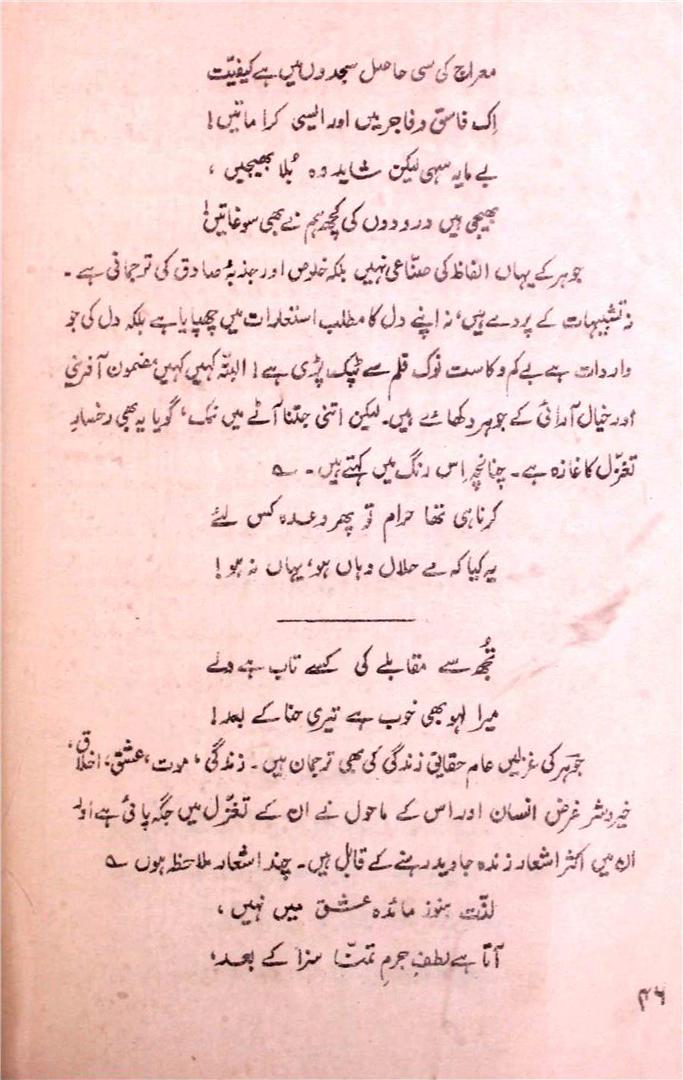 معراج کی سی حاصل سجدوں میں ہے کیفیّت
اِک فاسق و فاجر میں اور ایسی کراماتیں!
بے مایہ سہی لیکن شاید وہ بُلا بھیجیں،
بھیجی ہیں درودوں کی کچھ ہم نے بھی سوغاتیں!
جوہر کے یہاں الفاظ کی صنّاعی نہیں بلکہ خلوص اور جذبۂ صادق کی ترجمانی ہے۔
نہ تشبیہات کے پردے ہیں، نہ اپنے دل کا مطلب استعارات میں چھپایا ہے بلکہ دل کی جو
واردات ہے بے کم و کاست نوک قلم سے ٹپک پڑی ہے! البتّہ کہیں کہیں مضمون آفرینی
اور خیال آرائی کے جوہر دکھائے ہیں۔ لیکن اتنی جتنا آٹے میں نمک، گویا یہ بھی رخسارِ
تغزّل کا غازہ ہے۔ چنانچہ اِس رنگ میں کہتے ہیں۔ ؎
کرنا ہی تھا حرام تو پھر وعدہ کس لئے
یہ کیا کہ مے حلال وہاں ہو، یہاں نہ ہو!
تُجھ سے مقابلے کی کسے تاب ہے ولے
میرا لہو بھی خوب ہے تیری حنا کے بعد!
جوہر کی غزلیں عام حقایق زندگی کی بھی ترجمان ہیں۔ زندگی، موت، عشق، اخلاق،
خیر و شر غرض انسان اور اس کے ماحول نے ان کے تغزّل میں جگہ پائی ہے اور
ان میں اکثر اشعار زندہ جاوید رہنے کے قابل ہیں۔ چند اشعار ملاحظہ ہوں ؎
لذّت ہنوز مائدہ عشق میں نہیں،
آتا ہے لطفِ جرمِ تمنّا سزا کے بعد،
۴۶